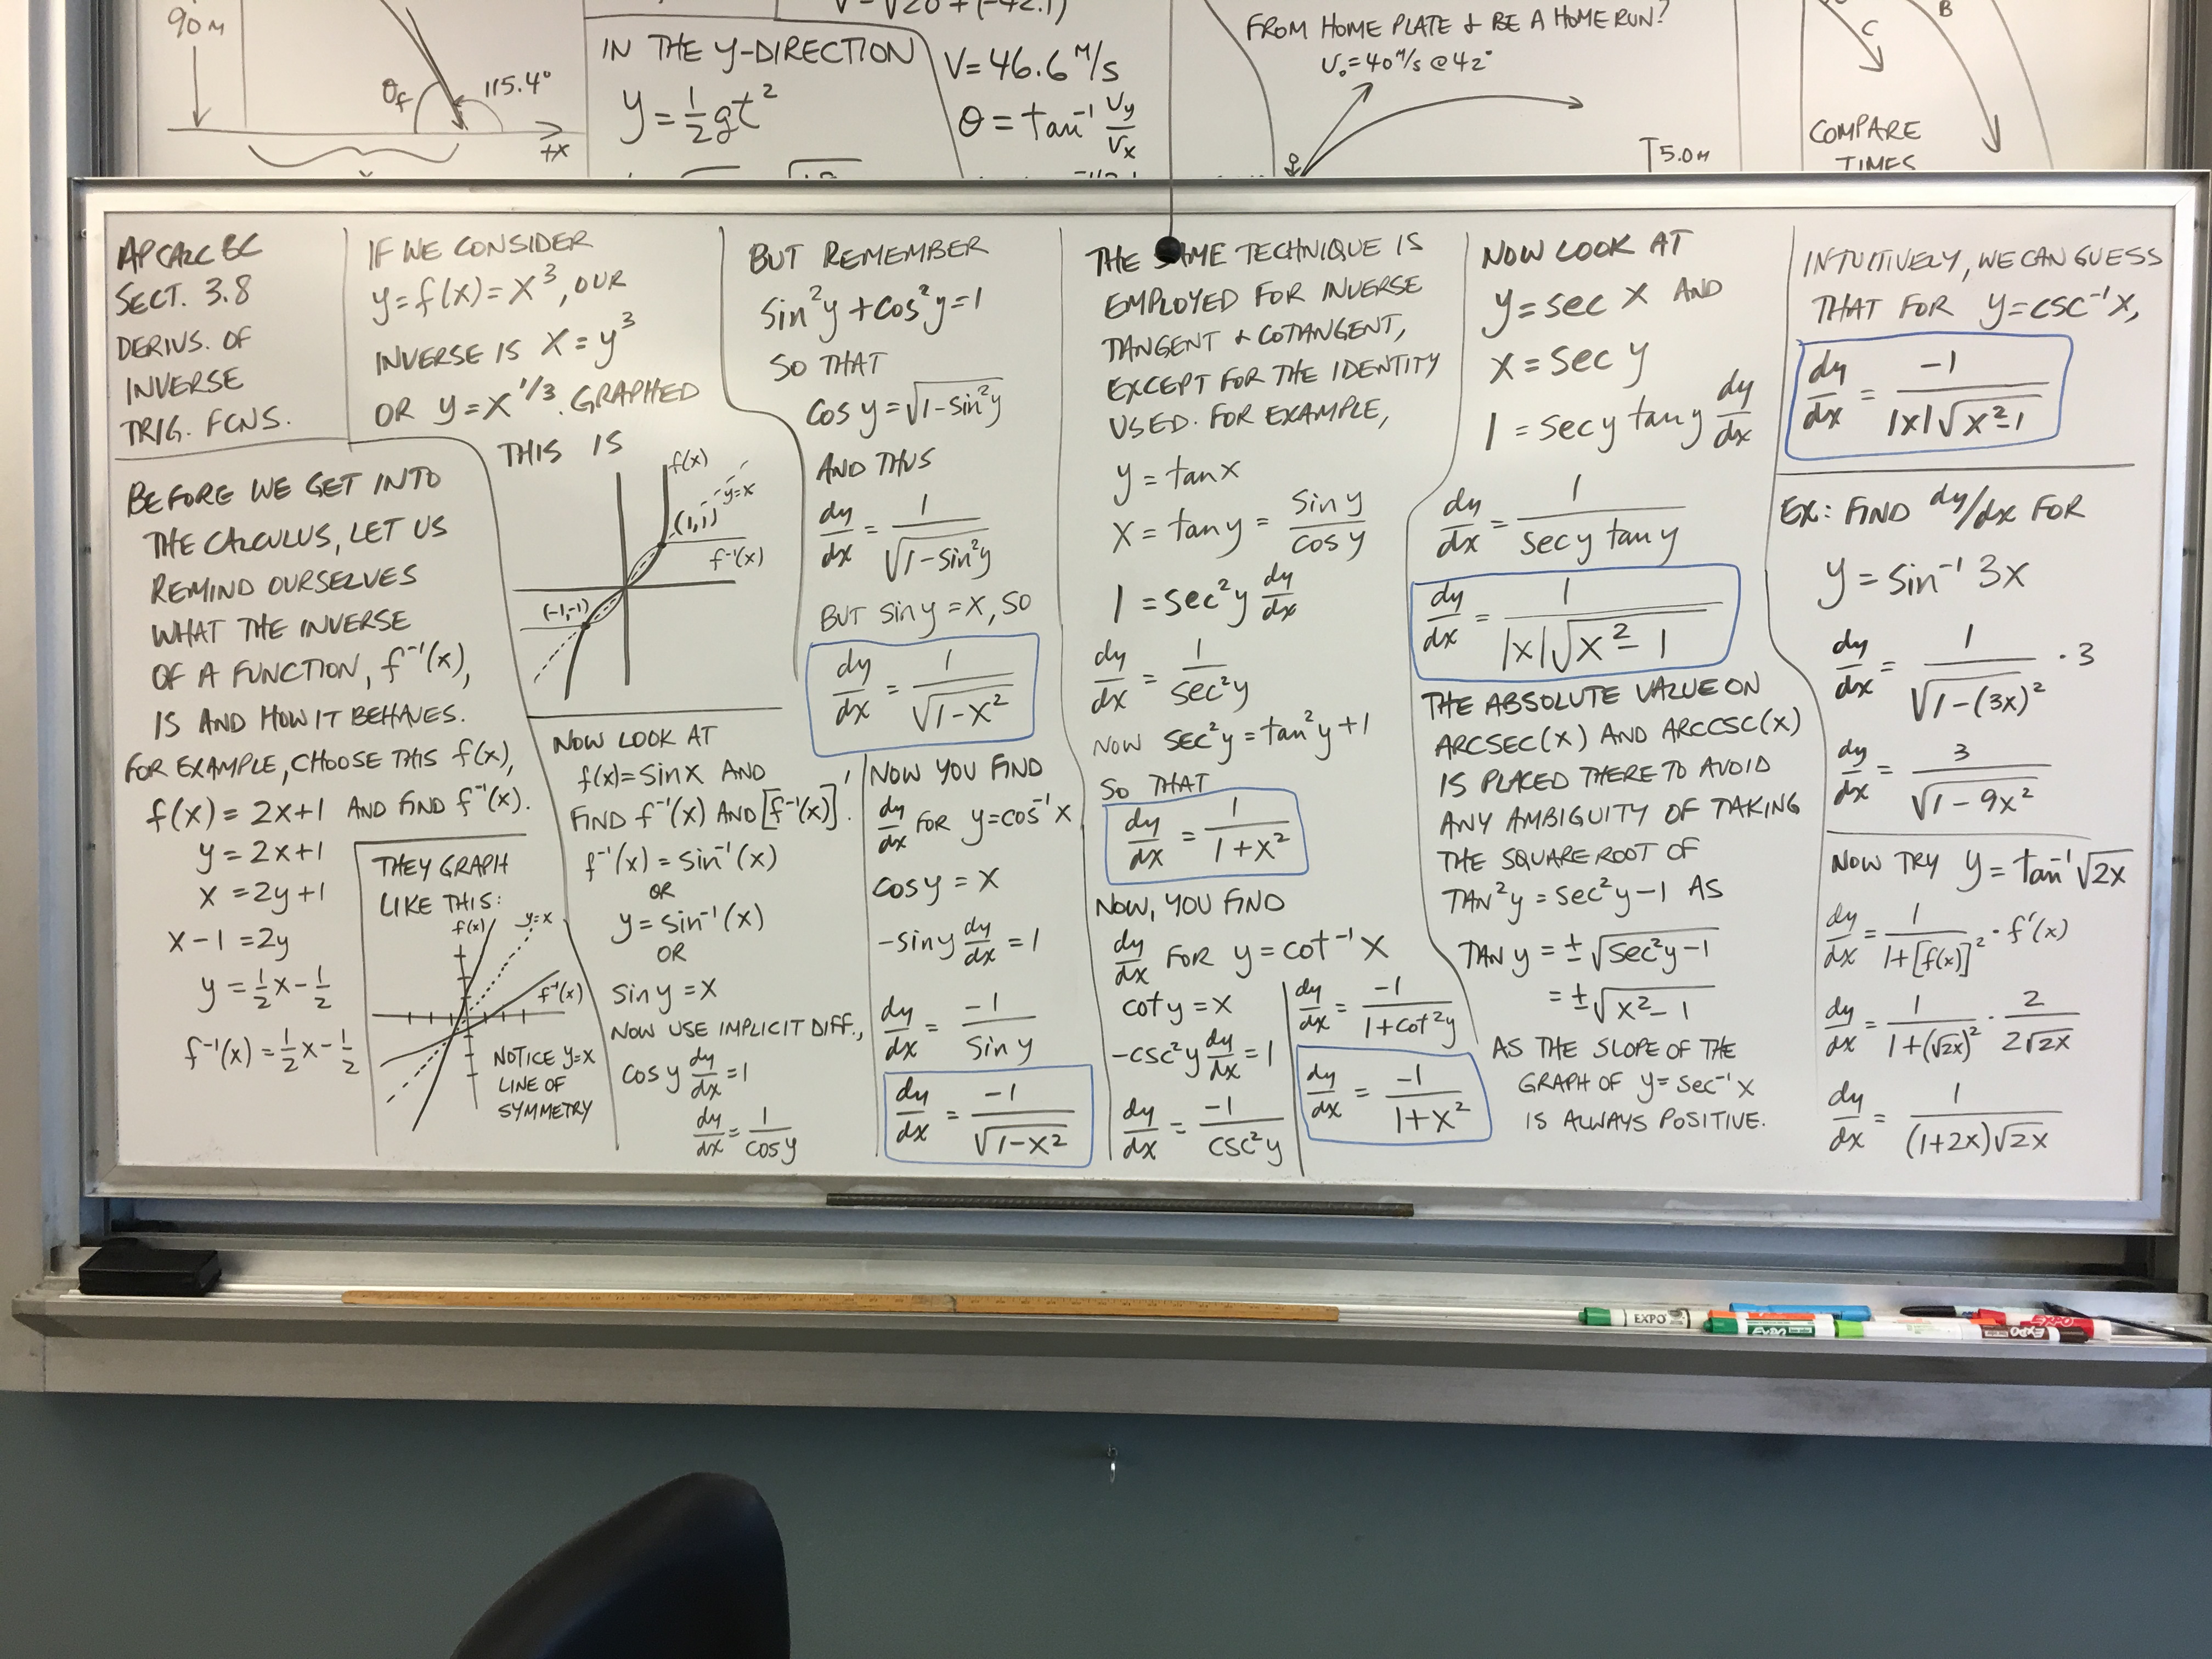 90 M
θf
115.4°
+X
V=√20²+(-42.1)
IN THE Y-DIRECTION
y = 1/2 gt²
V=46.6 M/S
θ = tan⁻¹ Vy/Vx
FROM HOME PLATE & BE A HOME RUN?
V₀=40 M/S @ 42°
5.0 M
C
B
COMPARE
TIMES
AP CALC BC
SECT. 3.8
DERIVS. OF
INVERSE
TRIG. FCNS.
BEFORE WE GET INTO
THE CALCULUS, LET US
REMIND OURSELVES
WHAT THE INVERSE
OF A FUNCTION, f⁻¹(x),
IS AND HOW IT BEHAVES.
FOR EXAMPLE, CHOOSE THIS f(x),
f(x) = 2x+1 AND FIND f⁻¹(x).
y = 2x+1
x = 2y+1
x-1 = 2y
y = 1/2 x - 1/2
f⁻¹(x) = 1/2 x - 1/2
THEY GRAPH
LIKE THIS:
f(x)
y=x
f⁻¹(x)
NOTICE y=x
LINE OF
SYMMETRY
IF WE CONSIDER
y = f(x) = x³, OUR
INVERSE IS x = y³
OR y = x^1/3. GRAPHED
THIS IS
f(x)
y=x
(1,1)
f⁻¹(x)
(-1,-1)
NOW LOOK AT
f(x)=sinx AND
FIND f⁻¹(x) AND [f⁻¹(x)]'.
f⁻¹(x) = sin⁻¹(x)
OR
y = sin⁻¹(x)
OR
sin y = x
NOW USE IMPLICIT DIFF.,
cos y dy/dx = 1
dy/dx = 1/cos y
BUT REMEMBER
sin²y + cos²y = 1
SO THAT
cos y = √1-sin²y
AND THUS
dy/dx = 1/√1-sin²y
BUT sin y = x, SO
dy/dx = 1/√1-x²
NOW YOU FIND
dy/dx FOR y = cos⁻¹x
cos y = x
-sin y dy/dx = 1
dy/dx = -1/sin y
dy/dx = -1/√1-x²
THE SAME TECHNIQUE IS
EMPLOYED FOR INVERSE
TANGENT & COTANGENT,
EXCEPT FOR THE IDENTITY
USED. FOR EXAMPLE,
y = tan x
x = tan y = sin y/cos y
1 = sec²y dy/dx
dy/dx = 1/sec²y
NOW sec²y = tan²y + 1
SO THAT
dy/dx = 1/1+x²
NOW, YOU FIND
dy/dx FOR y = cot⁻¹x
cot y = x
-csc²y dy/dx = 1
dy/dx = -1/csc²y
dy/dx = -1/1+cot²y
dy/dx = -1/1+x²
NOW LOOK AT
y = sec x AND
x = sec y
1 = sec y tan y dy/dx
dy/dx = 1/sec y tan y
dy/dx = 1/|x|√x²-1
THE ABSOLUTE VALUE ON
ARCSEC(X) AND ARCCSC(X)
IS PLACED THERE TO AVOID
ANY AMBIGUITY OF TAKING
THE SQUARE ROOT OF
TAN²y = sec²y-1 AS
TAN y = ±√sec²y-1
= ±√x²-1
AS THE SLOPE OF THE
GRAPH OF y = sec⁻¹x
IS ALWAYS POSITIVE.
INTUITIVELY, WE CAN GUESS
THAT FOR y = csc⁻¹x,
dy/dx = -1/|x|√x²-1
EX: FIND dy/dx FOR
y = sin⁻¹ 3x
dy/dx = 1/√1-(3x)² · 3
dy/dx = 3/√1-9x²
NOW TRY y = tan⁻¹√2x
dy/dx = 1/1+[f(x)]² · f'(x)
dy/dx = 1/1+(√2x)² · 2/2√2x
dy/dx = 1/(1+2x)√2x
EXPO
EXPO
EXPO
EXPO